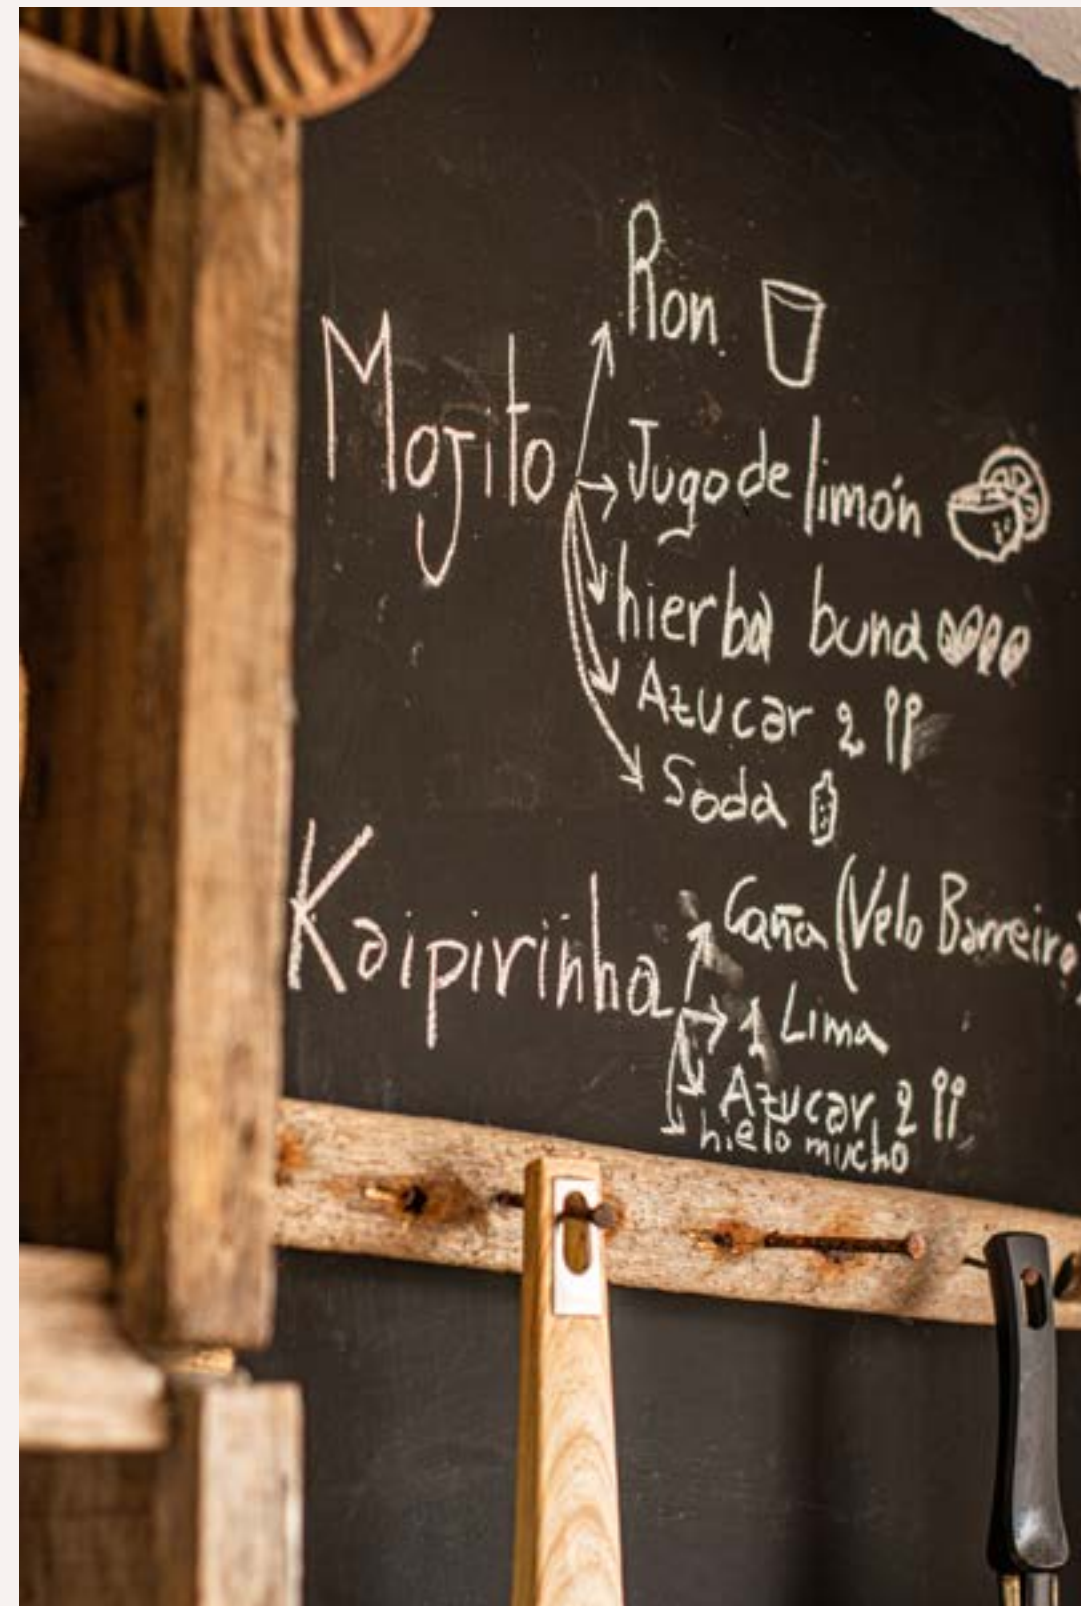 Ron
Mojito
Jugo de limón
hierba buna
Azucar 2
Soda
Kaipirinha
Caña (Velo Barreiro)
1 Lima
Azucar 2
hielo mucho